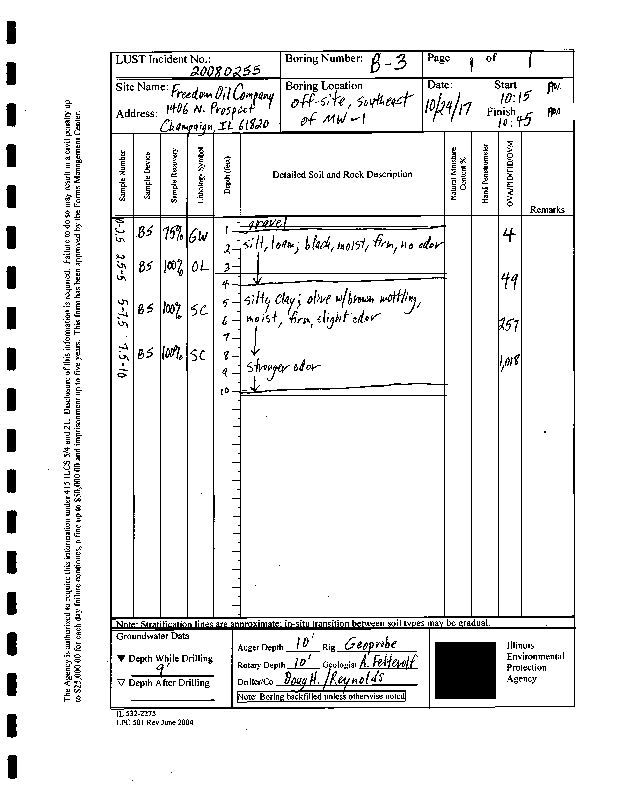 LUST Incident No.: 20080255
Boring Number: B-3
Page 1 of 1
Site Name: Freedom Oil Company
Address: 1406 N. Prospect
Champaign, IL 61820
Boring Location
off-site, southeast
of MW-1
Date:
10/24/17
Start
10:15
Finish
10:45
Sample Number
Sample Device
Sample Recovery
Lithology Symbol
Depth (Feet)
Detailed Soil and Rock Description
Natural Moisture Content %
Hand Penetrometer
OVA/PID/FID/OVM
Remarks
0-2.5 BS 75% GW 1 gravel 4
2 silt, loam; black, moist, firm, no odor
2.5-5 BS 100% OL 3
4 49
5-7.5 BS 100% SC 5 silty clay; olive w/brown mottling,
6 moist, firm, slight odor 257
7
7.5-10 BS 100% SC 8 1,018
9 stronger odor
10
Note: Stratification lines are approximate; in-situ transition between soil types may be gradual.
Groundwater Data
▼ Depth While Drilling
9'
▽ Depth After Drilling
Auger Depth 10' Rig Geoprobe
Rotary Depth 10' Geologist A. Fetterolf
Driller/Co Doug H. /Reynolds
Note: Boring backfilled unless otherwise noted
Illinois
Environmental
Protection
Agency
IL 532-2273
LPC 501 Rev June 2004
The Agency is authorized to require this information under 415 ILCS 5/4 and 21. Disclosure of this information is required. Failure to do so may result in a civil penalty up
to $25,000.00 for each day failure continues, a fine up to $50,000.00 and imprisonment up to five years. This form has been approved by the Forms Management Center.